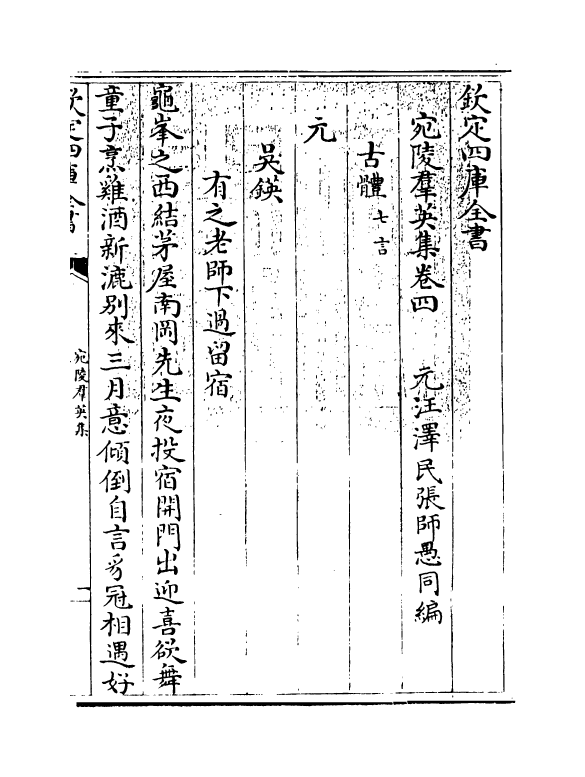 欽定四庫全書
宛陵羣英集卷四　元汪澤民張師愚同編
古體七言
元
吳鍈
有之老師下過留宿
龜峯之西結茅屋南岡先生夜投宿開門出迎喜欲舞
童子烹雞酒新漉別來三月意傾倒自言豸冠相遇好
欽定四庫全書
宛陵羣英集
一